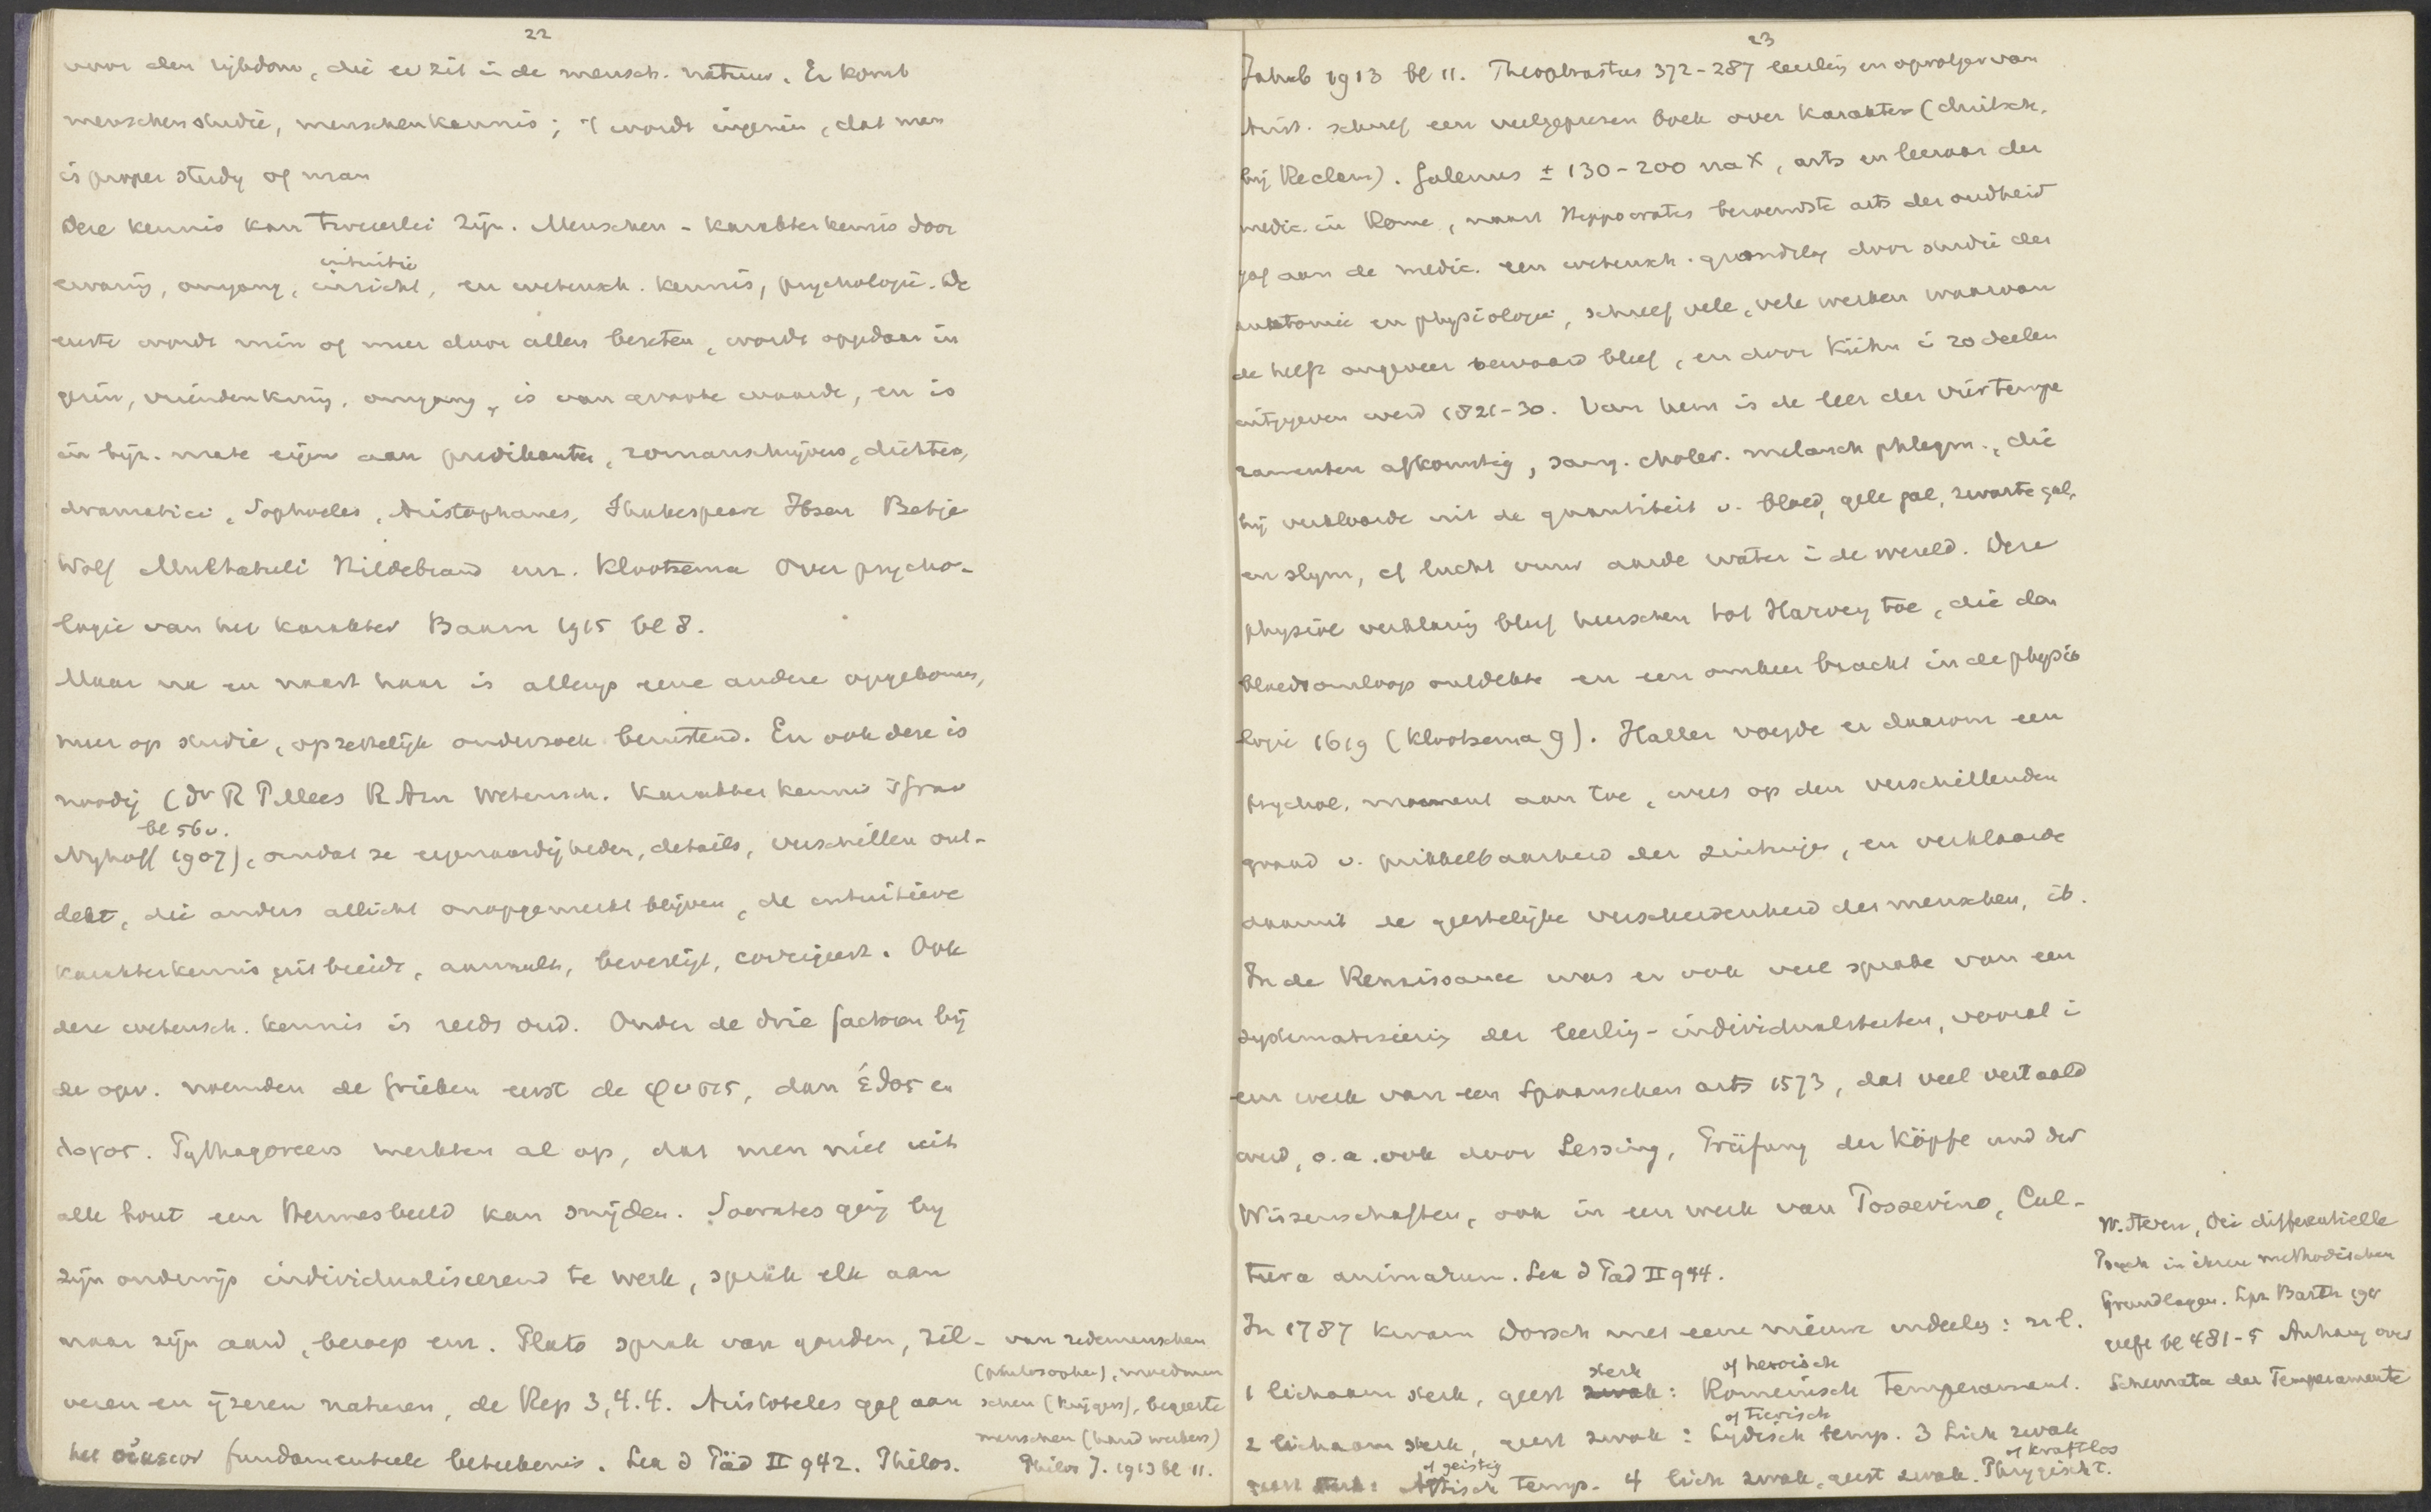 22
voor den rijkdom, die er zit in de mensch. natuur. Er komt
menschenstudie, menschenkennis; 't wordt ingezien, dat man
is proper study of man
Deze kennis kan tweeerlei zijn. Menschen-karakterkennis door
intuitie
ervaring, omgang, inzicht, en wetensch. kennis, psychologie. De
eerste wordt min of meer door allen bezeten, wordt opgedaan in
gezin, vriendenkring, omgang, is van groote waarde, en is
in bijz. mate eigen aan predikanten, romanschrijvers, dichters,
dramatici, Sophocles, Aristophanes, Shakespeare Ibsen Betje
Wolf Multatuli Hildebrand enz. Klootsema Over psycho-
logie van het karakter Baarn 1915 bl 8.
Maar na en naast haar is allengs eene andere opgekomen,
meer op studie, opzettelijk onderzoek berustend. En ook deze is
noodig (Dr R P Mees R Azn Wetensch. karakterkennis 's Grav
bl 56v.
Nyhoff 1907), omdat ze eigenaardigheden, details, verschillen ont-
dekt, die anders allicht onopgemerkt blijven, de intuitieve
karakterkennis uitbreidt, aanvult, bevestigt, corrigeert. Ook
deze wetensch. kennis is reeds oud. Onder de drie factoren bij
de opv. noemden de Grieken eerst de φυσις, dan ἐθος en
λογος. Pythagoreers merkten al op, dat men niet uit
elk hout een Hermesbeeld kan snijden. Socrates ging bij
zijn onderwijs individualiseerend te werk, sprak elk aan
naar zijn aard, beroep enz. Plato sprak van gouden, zil-
veren en ijzeren naturen, de Rep 3, 4. 4. Aristoteles gaf aan
het οἰκειον fundamenteele beteekenis. Lex d Päd II 942. Philos.
van redemenschen
(philosophen), moedmen
schen (krijgers), begeerte
menschen (handwerkers)
Philos J. 1913 bl 11.
23
Jahrb 1913 bl 11. Theophrastus 372-287 leerling en opvolger van
Arist. schreef een veelgeprezen boek over karakter (duitsch.
bij Reclam). Galenus ± 130-200 na X, arts en leeraar der
medic. in Rome, naast Hippocrates beroemdste arts der oudheid
gaf aan de medic. een wetensch. grondslag door studie der
anatomie en physiologie, schreef vele, vele werken waarvan
de helft ongeveer bewaard bleef, en door Kühn i 20 deelen
uitgegeven werd 1821-30. Van hem is de leer der vier tempe
ramenten afkomstig, sang. choler. melanch phlegm., die
hij verklaarde uit de quantiteit v. bloed, gele gal, zwarte gal,
en slijm, cf lucht vuur aarde water i de wereld. Deze
physiol verklaring bleef heerschen tot Harvey toe, die den
bloedsomloop ontdekte en een omkeer bracht in de physio
logie 1619 (Klootsema 9). Haller voegde er daarom een
psychol. moment aan toe, wees op den verschillenden
graad v. prikkelbaarheid der zintuigen, en verklaarde
daaruit de geestelijke verscheidenheid der menschen, ib.
In de Renaissance was er ook veel sprake van een
systematiseering der leerling-individualiteiten, vooral i
een werk van een Spaanschen arts 1573, dat veel vertaald
werd, o.a. ook door Lessing, Prüfung der Köpfe und der
Wissenschaften, ook in een werk van Possevino, Cul-
tura animarum. Lex d Päd II 944.
In 1787 kwam Dorsch met eene nieuwe indeeling: nl.
sterk of heroisch
1 lichaam sterk, geest zwak: Romeinsch temperament.
of tierisch
2 lichaam sterk, geest zwak: Lydisch temp. 3 Lich zwak
of geistig of kraftlos
geest sterk: Attisch temp. 4 lich zwak, geest zwak. Phrygisch t.
W. Stern, Die differentielle
Psych in ihren methodischen
Grundlagen. Lpz Barth 191
geeft bl 481-5 Anhang over
Schemata der Temperamente